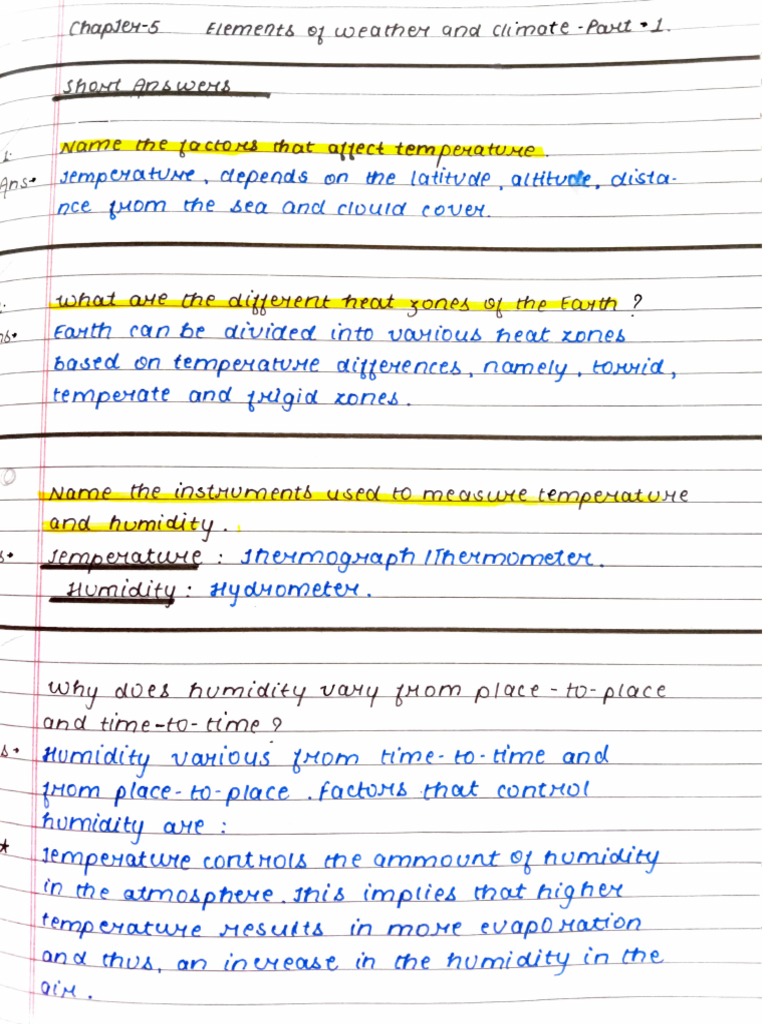 Chapter-5 Elements of weather and climate - Part • 1.
Short Answers
1. Name the factors that affect temperature.
Ans• Temperature, depends on the latitude, altitude, dista-
nce from the sea and clould cover.
What are the different heat zones of the Earth ?
ns• Earth can be divided into various heat zones
based on temperature differences, namely, torrid,
temperate and frigid zones.
Name the instruments used to measure temperature
and humidity.
s• Temperature : Thermograph / Thermometer.
Humidity : Hydrometer.
Why does humidity vary from place-to-place
and time-to-time ?
s• Humidity various from time-to-time and
from place-to-place. factors that control
humidity are :
★ Temperature controls the ammount of humidity
in the atmosphere. This implies that higher
temperature results in more evaporation
and thus, an increase in the humidity in the
air.